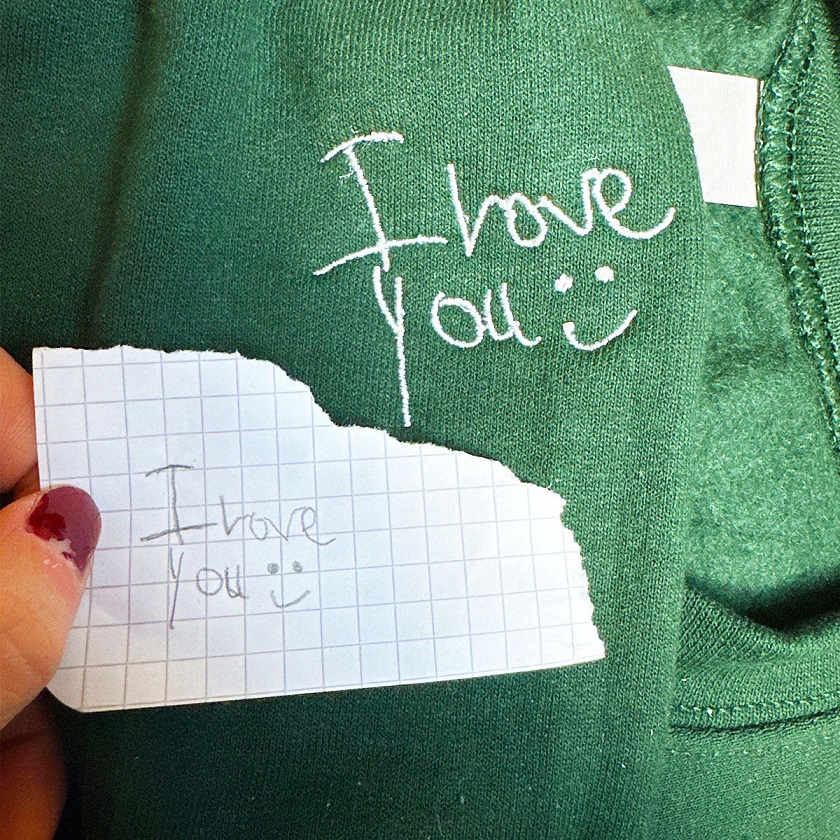 I love
You
I love
You